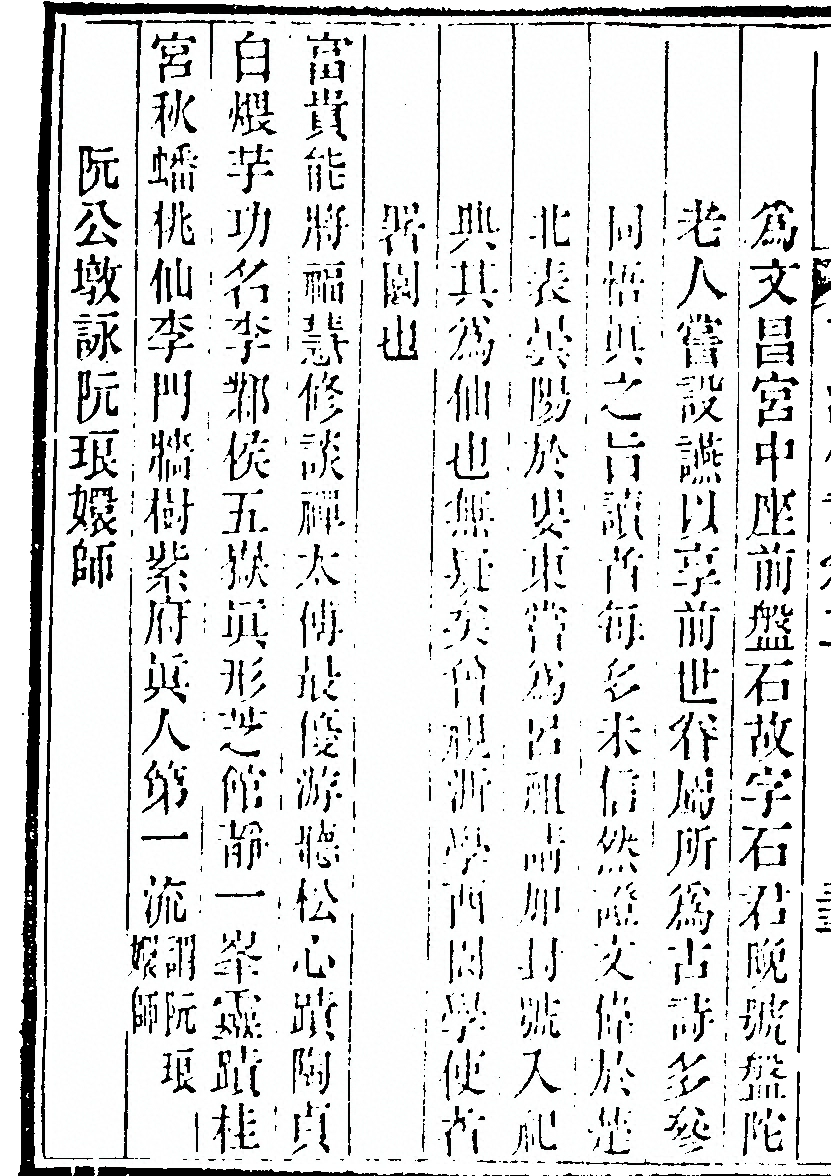 為文昌宮中座前盤石故字石君晚號盤陀
老人嘗設讌以享前世眷屬所為古詩多參
同悟真之旨讀者每多未信然證文偉於是
北表曇陽於婁東嘗為呂祖請加封號入祀
典其為仙也無疑矣曾視浙學西園學使者
署園也
富貴能將福慧修談禪太傅最優游聽松心蹟陶貞
白煨芋功名李鄴侯五嶽真形芝館靜一峯靈蹟桂
宮秋蟠桃仙李門牆樹紫府真人第一流謂阮琅嬛師
阮公墩詠阮琅嬛師